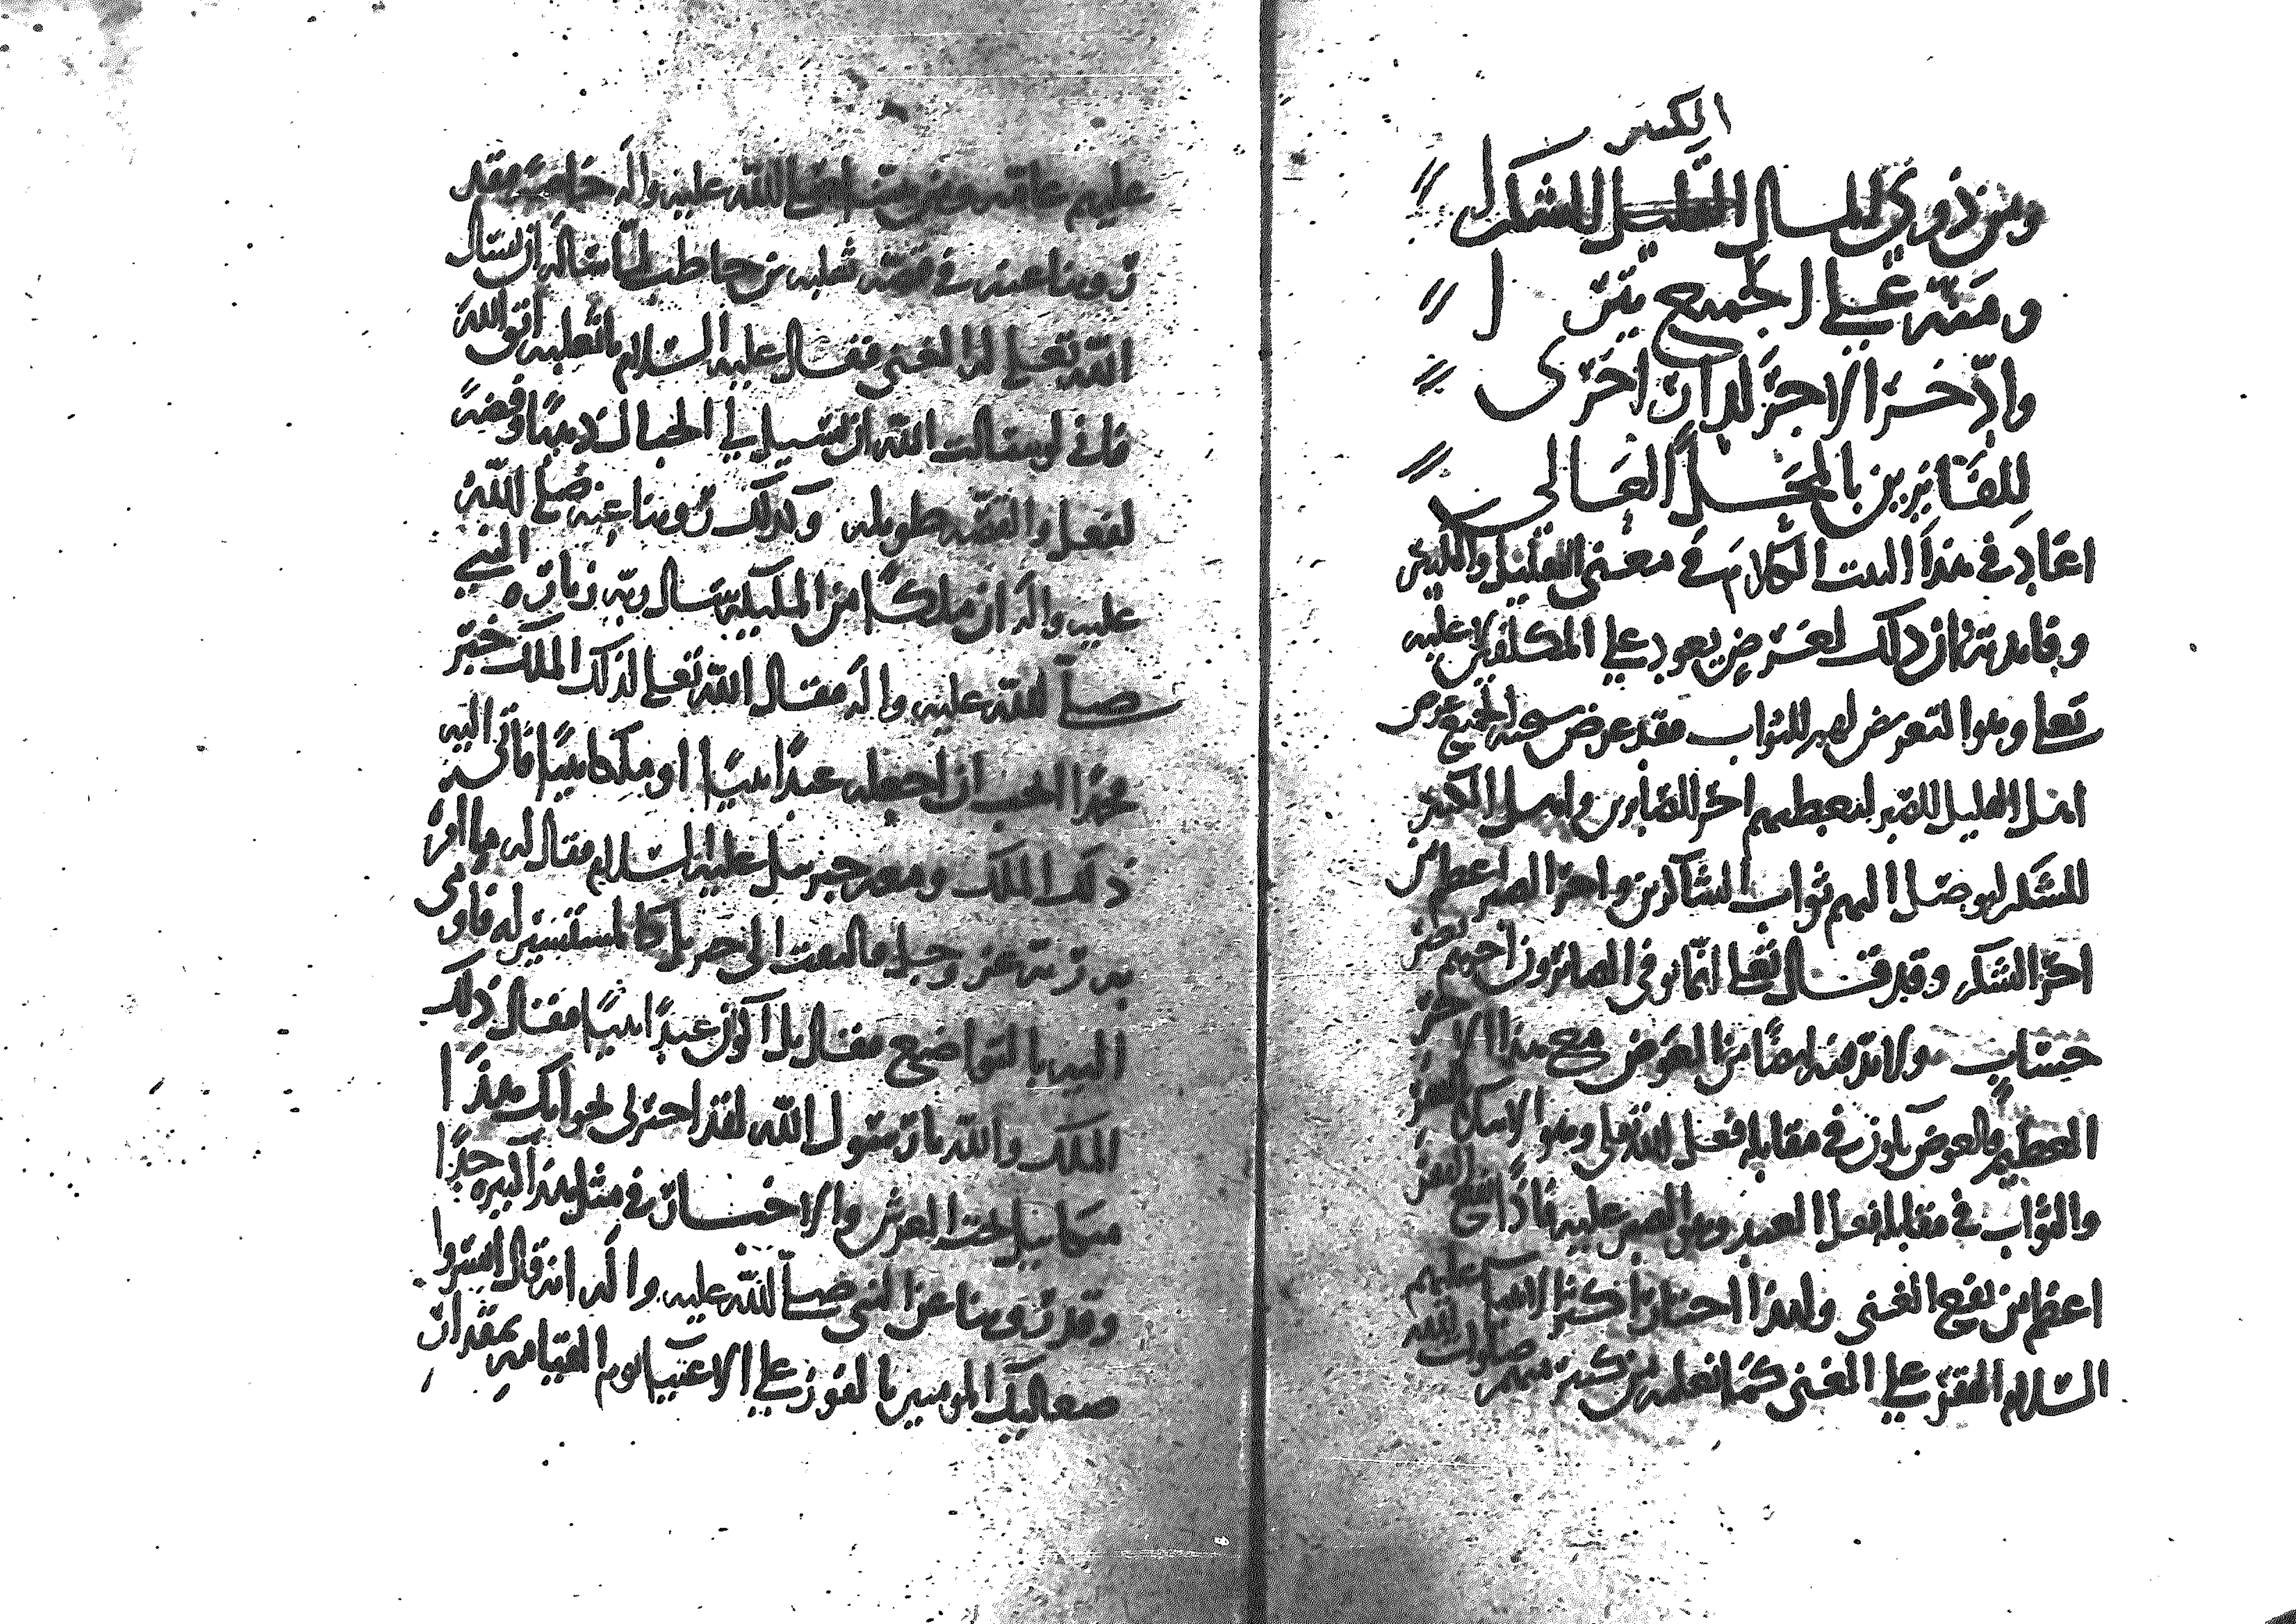 الكثير
ومن ذوي المال القليل للشكرا
ومنة على الجميع تترا
وادخر الاجر لدار اخرى
للفائزين بالمحل العالي
اعاد في هذا البيت الكلام في معنى التقليل والتكثير
وفايدته وان ذلك لغرض يعود على المكلفين لا عليه
تعالى وهو التعريض لهم للثواب فقد عرض سبحنه الجميع عرض
اهل القليل للصبر ليعطيهم اجر الصابرين واهل الكثير
للشكر ليوصل اليهم ثواب الشاكرين واجر الصبر اعظم من
اجر الشكر وقد قال تعالى انما يوفى الصابرون اجرهم بغير
حساب ولا بد فيه ايضا من العوض مع هذا الاجر
العظيم فالعوض يكون في مقابلة فعل الله تعالى وهو الابتلا بالفقر
والثواب في مقابلة فعل العبد وهو الصبر عليه فاذا نفع الفقر
اعظم من نفع الغنى ولهذا اختار اكثر الانبيا عليهم
السلام الفقر على الغنى كما نعلمه من كثير منهم صلوات الله
عليهم عامة ومن نبينا صلى الله عليه واله خاصة فقد
روينا عنه في قصة ثعلبه بن حاطب لما سأله ان يسال
الله تعالى له الغنى فقال عليه السلام يا ثعلبه اتق الله
فاني لو سالت الله ان تسيل لي الجبال ذهبا وفضة
لفعل والقصة طويله وكذلك روينا عنه صلى الله
عليه واله ان ملكا من المليكة سال ربه زيارة النبي
صلى الله عليه واله فقال الله تعالى لذلك الملك خير
محمدا ايحب ان اجعله عبدا نبيا او ملكا نبيا فاتى اليه
ذلك الملك ومعه جبريل عليه السلام فقال له ما امره
به ربه عز وجل فالتفت الى جبريل كالمستشير له فاومى
اليه بالتواضع فقال بل اكون عبدا نبيا فقال ذلك
الملك والله يا رسول الله لقد اهتز لجوابك هذا
ميكائيل تحت العرش والاخبار في مثل هذا كثيره جدا
وقد روينا عن النبي صلى الله عليه واله انه قال ابشروا
صعاليك المومنين بالفوز على الاغنيا يوم القيامه بمقدار